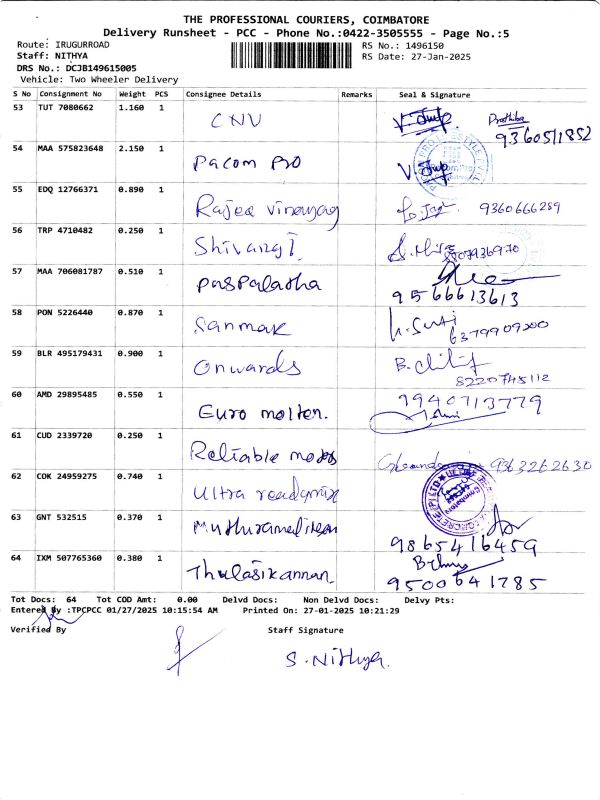 THE PROFESSIONAL COURIERS, COIMBATORE
Delivery Runsheet - PCC - Phone No.:0422-3505555 - Page No.:5
Route: IRUGURROAD RS No.: 1496150
Staff: NITHYA RS Date: 27-Jan-2025
DRS No.: DCJB149615005
Vehicle: Two Wheeler Delivery
S No Consignment No Weight PCS Consignee Details Remarks Seal & Signature
53 TUT 7080662 1.160 1 CNV Prathiba 9360511852
54 MAA 575823648 2.150 1 Pacom Pro
55 EDQ 12766371 0.890 1 Rajee vinayag 9360666289
56 TRP 4710482 0.250 1 Shivangi
57 MAA 706081787 0.510 1 paspalatha 9566613613
58 PON 5226440 0.870 1 Sanmak 6379909200
59 BLR 495179431 0.900 1 Onwards 8220745112
60 AMD 29895485 0.550 1 Euro molten. 9940713779
61 CUD 2339720 0.250 1 Reliable 9363262630
62 COK 24959275 0.740 1 Ultra readymix
63 GNT 532515 0.370 1 9865416459
64 IXM 507765360 0.380 1 Thulasikannan 9500641785
Tot Docs: 64 Tot COD Amt: 0.00 Delvd Docs: Non Delvd Docs: Delvy Pts:
Entered By :TPCPCC 01/27/2025 10:15:54 AM Printed On: 27-01-2025 10:21:29
Verified By Staff Signature
S. Nithya.